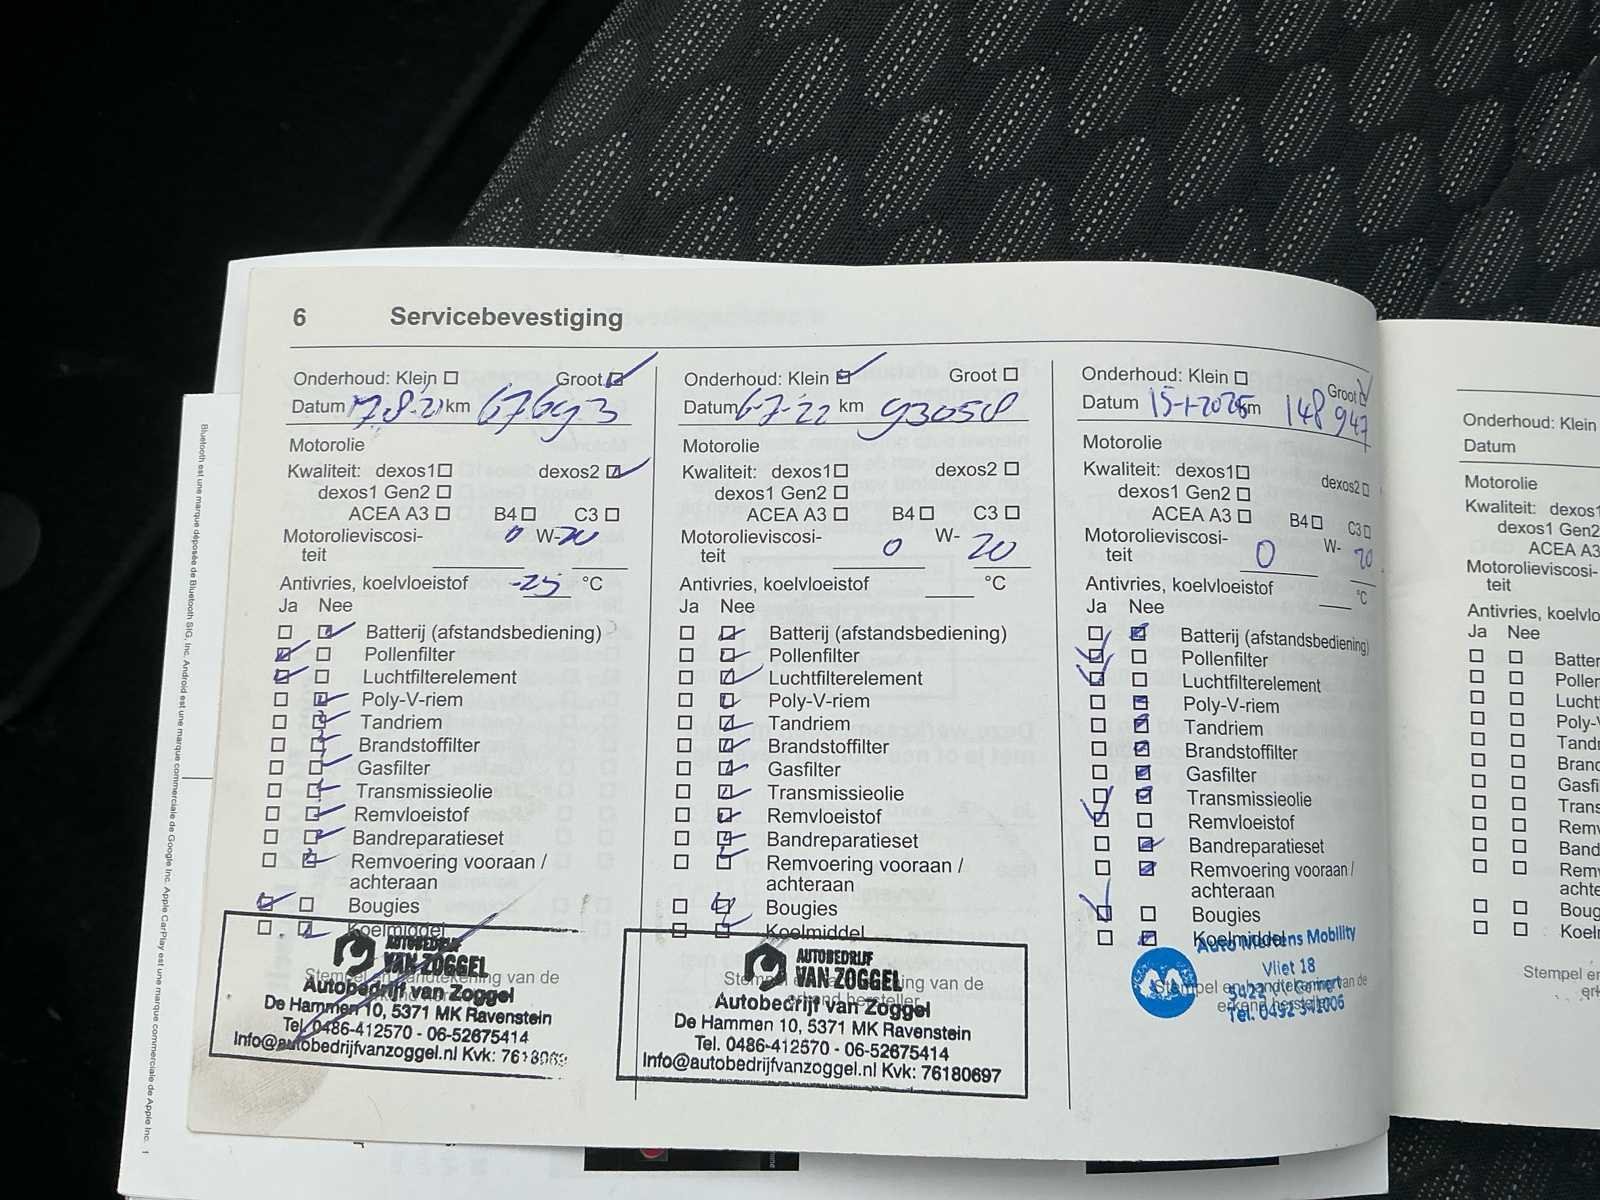 6 Servicebevestiging
Onderhoud: Klein Groot
Datum 7.8.21 km 67693
Motorolie
Kwaliteit: dexos1 dexos2
dexos1 Gen2
ACEA A3 B4 C3
Motorolieviscosi-
teit 0 W-20
Antivries, koelvloeistof -25 °C
Ja Nee
Batterij (afstandsbediening)
Pollenfilter
Luchtfilterelement
Poly-V-riem
Tandriem
Brandstoffilter
Gasfilter
Transmissieolie
Remvloeistof
Bandreparatieset
Remvoering vooraan /
achteraan
Bougies
Koelmiddel
AUTOBEDRIJF
VAN ZOGGEL
Stempel en handtekening van de
Autobedrijf van Zoggel
De Hammen 10, 5371 MK Ravenstein
Tel. 0486-412570 - 06-52675414
Info@autobedrijfvanzoggel.nl Kvk:
Onderhoud: Klein Groot
Datum 6-7-22 km 93058
Motorolie
Kwaliteit: dexos1 dexos2
dexos1 Gen2
ACEA A3 B4 C3
Motorolieviscosi-
teit 0 W-20
Antivries, koelvloeistof °C
Ja Nee
Batterij (afstandsbediening)
Pollenfilter
Luchtfilterelement
Poly-V-riem
Tandriem
Brandstoffilter
Gasfilter
Transmissieolie
Remvloeistof
Bandreparatieset
Remvoering vooraan /
achteraan
Bougies
Koelmiddel
AUTOBEDRIJF
VAN ZOGGEL
Stempel en handtekening van de
erkend hersteller
Autobedrijf van Zoggel
De Hammen 10, 5371 MK Ravenstein
Tel. 0486-412570 - 06-52675414
Info@autobedrijfvanzoggel.nl Kvk: 76180697
Onderhoud: Klein Groot
Datum 15-1-2025 km 148947
Motorolie
Kwaliteit: dexos1 dexos2
dexos1 Gen2
ACEA A3 B4 C3
Motorolieviscosi-
teit 0 W-20
Antivries, koelvloeistof °C
Ja Nee
Batterij (afstandsbediening)
Pollenfilter
Luchtfilterelement
Poly-V-riem
Tandriem
Brandstoffilter
Gasfilter
Transmissieolie
Remvloeistof
Bandreparatieset
Remvoering vooraan /
achteraan
Bougies
Koelmiddel
Auto Mertens Mobility
Vliet 18
Stempel en handtekening van de
Gemert
erkend hersteller
Tel. 0492 341006
Onderhoud: Klein
Datum
Motorolie
Kwaliteit: dexos1
dexos1 Gen2
ACEA A3
Motorolieviscosi-
teit
Antivries, koelvlo
Ja Nee
Batter
Pollen
Lucht
Poly-V
Tandr
Brand
Gasfi
Trans
Remv
Band
Remv
achte
Boug
Koel
Stempel en
erk
Bluetooth est une marque déposée de Bluetooth SIG, Inc. Android est une marque commerciale de Google Inc. Apple CarPlay est une marque commerciale de Apple Inc. 1